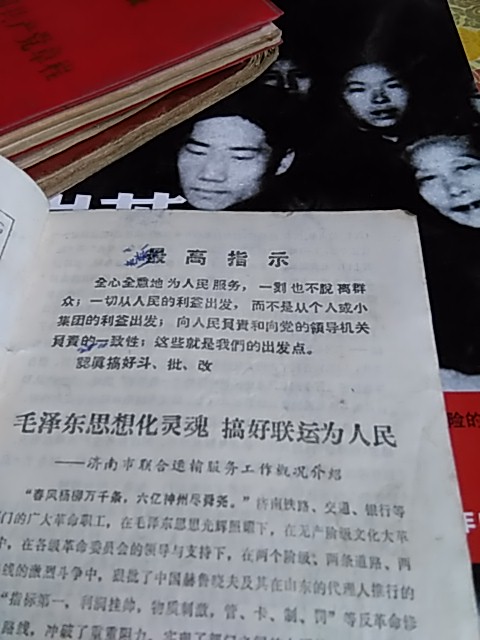 最高指示
全心全意地为人民服务,一刻也不脫离群
众;一切从人民的利益出发,而不是从个人或小
集团的利益出发;向人民負責和向党的領导机关
負責的一致性;这些就是我們的出发点。
認真搞好斗、批、改
毛泽东思想化灵魂 搞好联运为人民
——济南市联合运输服务工作概况介绍
“春风杨柳万千条,六亿神州尽舜尧。”济南铁路、交通、银行等
门的广大革命职工,在毛泽东思想光辉照耀下,在无产阶级文化大革
中,在各级革命委员会的领导与支持下,在两个阶级、两条道路、两
线的激烈斗争中,狠批了中国赫鲁晓夫及其在山东的代理人推行的
“指标第一,利润挂帅,物质刺激,管、卡、制、罚”等反革命修
路线,冲破了重重阻力,实现了部门之间的
险的